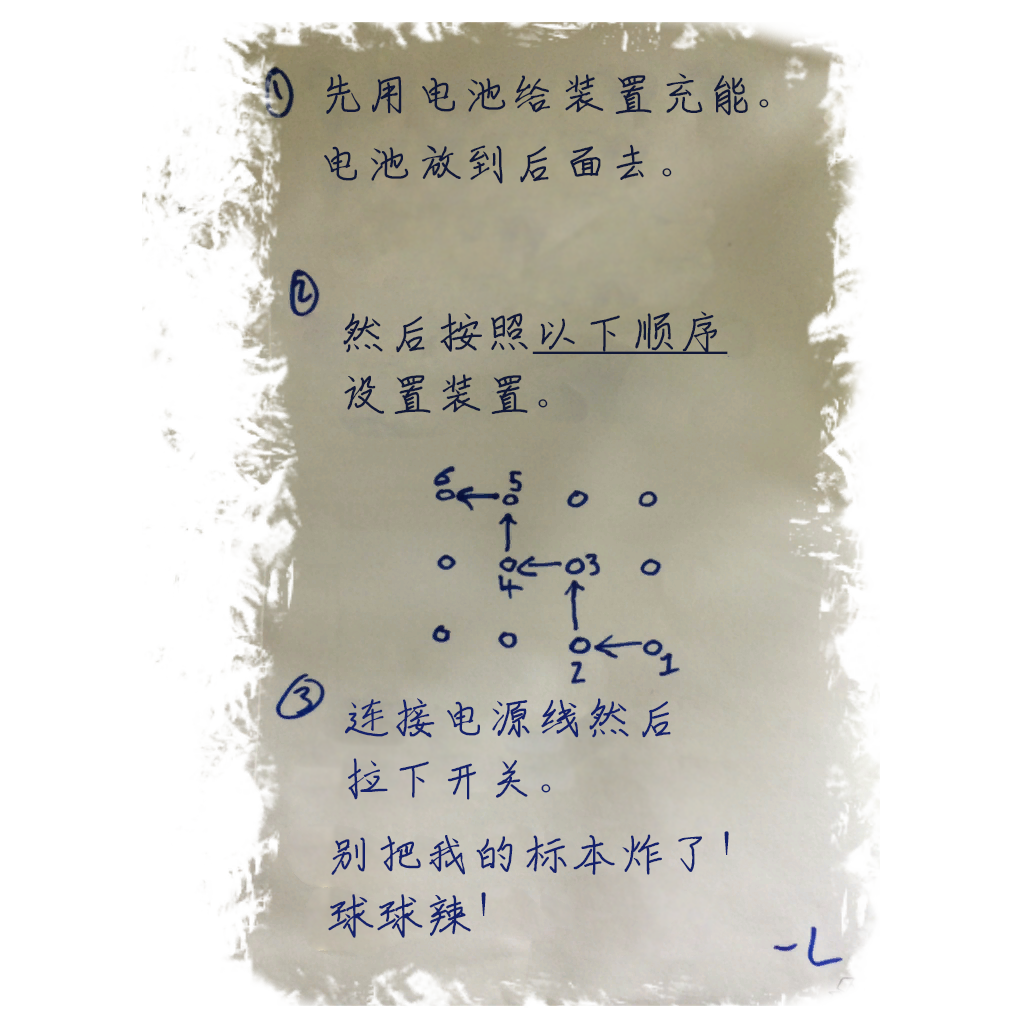 ① 先用电池给装置充能。
电池放到后面去。
② 然后按照以下顺序
设置装置。
6 5
3
4
2 1
③ 连接电源线然后
拉下开关。
别把我的标本炸了!
球球辣!
-L